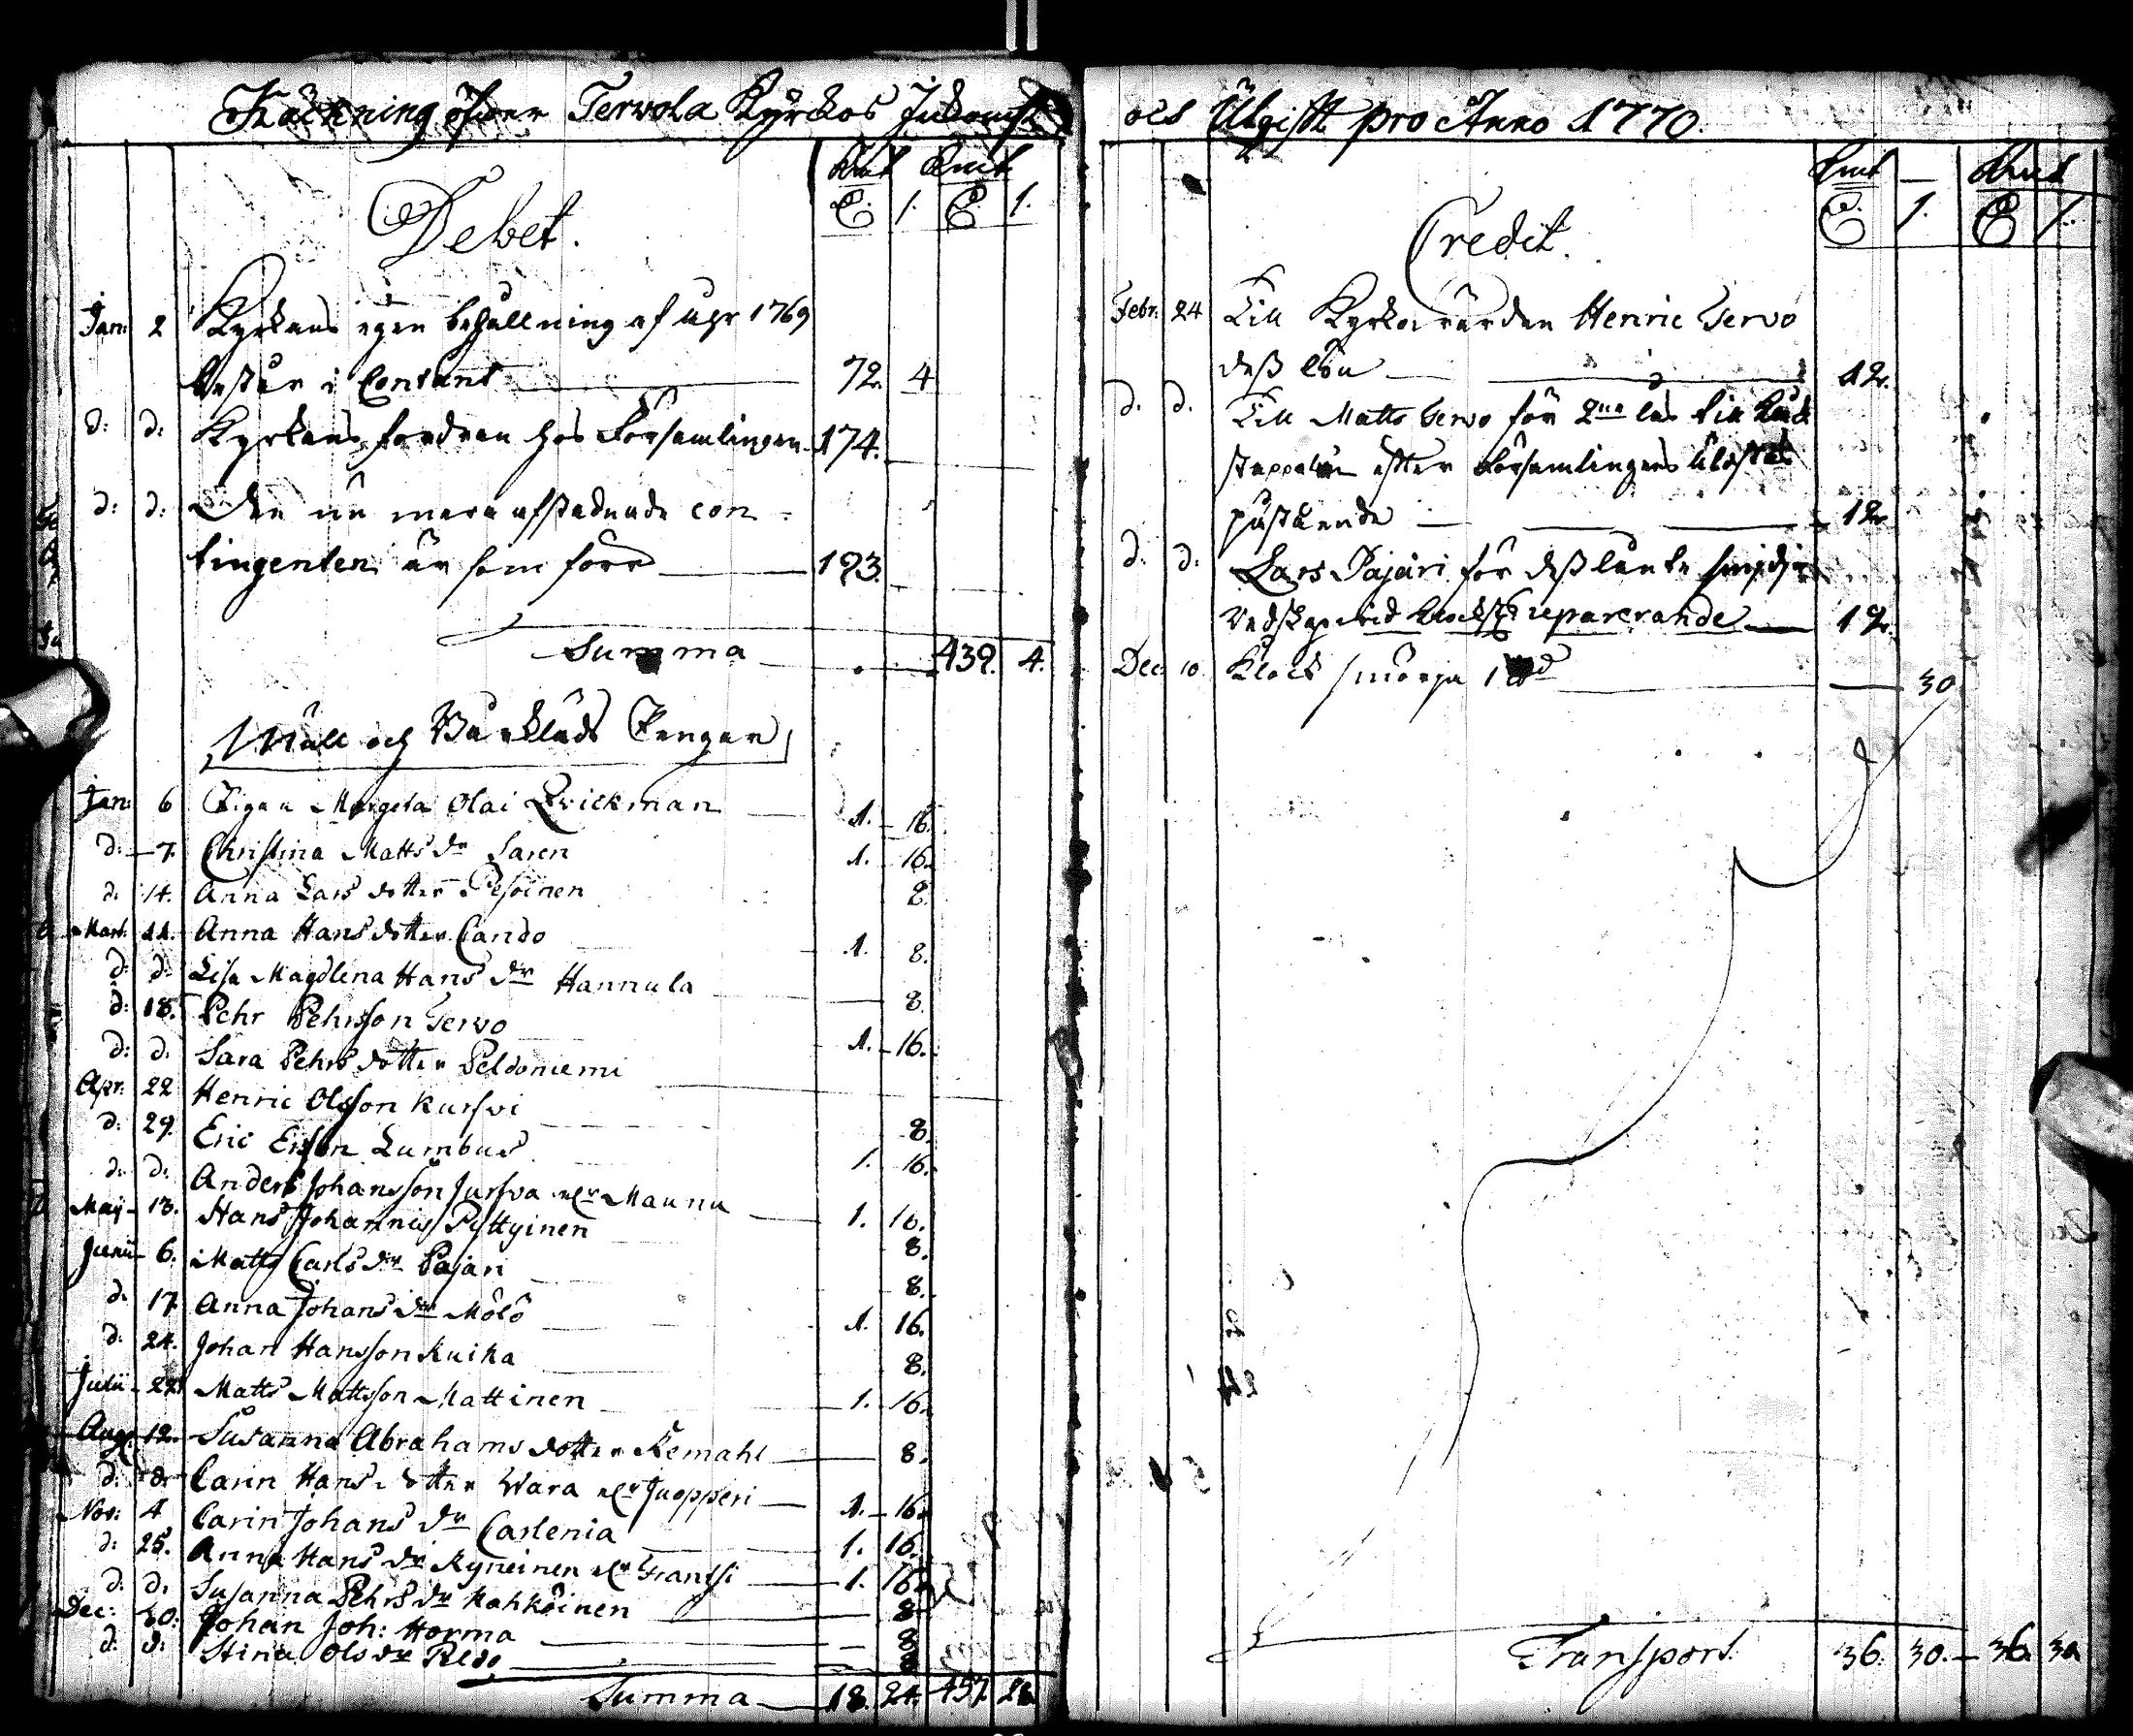 Räckning öfwer Tervola Kyrkos Inkomst
Kmt Kmt
D. 1. D. 1.
Debet.
Jan: 2 Kyrkans egen behållning af åhr 1769
består i Contant 72. 4
d: d: Kyrkans fordran hos Församlingen 174.
d: d: Den nu mera afstadnade con-
tingenten är som förr 193.
Summa 439. 4.
Mull och Bårkläds Pengar
Jan: 6 Pigan Margeta Olai Qvickman 1. 16.
d: 7. Christina Matts dr Saren 1. 16.
d. 14. Anna Lars dotter Pesoinen 8.
Mart. 11. Anna Hans dotter Cando 1. 8.
d: d: Lisa Magdlena Hans dr Hannula 8.
d: 18. Pehr Pehrsson Tervo 1. 16.
d: d. Sara Pehrs dotter Peldoniemi
Apr: 22 Henric Olsson Kursvi 8.
d: 29. Eric Erson Lumbus 1. 16.
d: d. Anders Johansson Jursva elr Maunu 1. 16.
Maij 13. Hans Johannis Pyttyinen 8.
Junii 6. Matts Carls dr Pajari 8.
d. 17. Anna Johans dr Mölö 1. 16.
d. 24. Johan Hansson Kuika 8.
Julii 22 Matts Mattsson Mattinen 1. 16.
Aug. 12. Susanna Abrahams dotter Kemahl 8.
d: d: Carin Hans dotter Wara elr Juopperi 1. 16.
Nov: 4 Carin Johans dr Carlenia 1. 16.
d: 25. Anna Hans dr Ryneinen elr Frantsi 1. 16.
d: d. Susanna Pehrs dr Kahkoinen 8
Dec: 30: Johan Joh: Horma 8
d: d: Stina Ols dr Reds 8
Summa 18. 24. 457. 28
och Utgifft pro Anno 1770.
Kmt Kmt
D. 1. D. 1.
Credit.
Febr: 24 Till Kyrkovärden Henric Tervo
dess lön 12.
d. d. Till Matts Tervo för
efter Församlingens
påstående 12
d. d. Lars Pajari för dess
reparerande 12.
Dec 10 Klock smörja 1 30
Transport. 36. 30. 36. 30